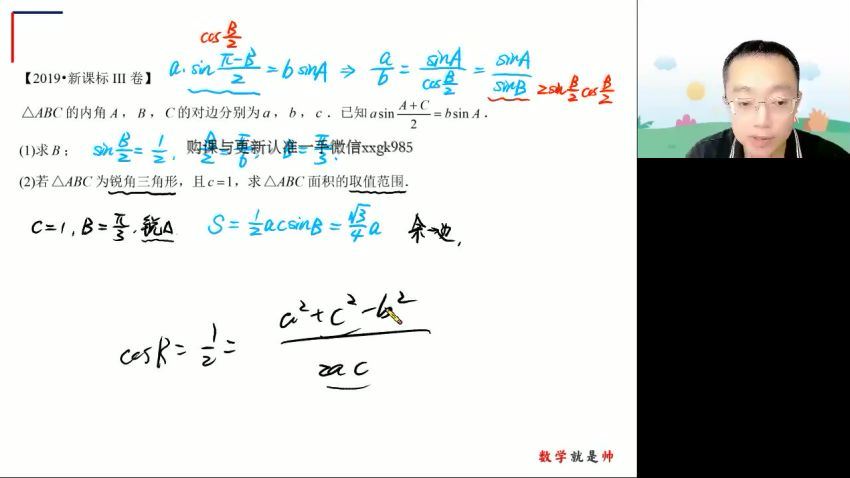 cos B/2
a·sin (π-B)/2 = b sinA ⇒ a/b = sinA/cos B/2 = sinA/sinB 2sin B/2 cos B/2
【2019•新课标 III 卷】
△ABC 的内角 A，B，C 的对边分别为 a，b，c．已知 a sin (A+C)/2 = b sin A．
(1)求 B； sin B/2 = 1/2, B/2 = π/6, B = π/3.
购课与更新认准一手微信xxgk985
(2)若 △ABC 为锐角三角形，且 c=1，求 △ABC 面积的取值范围．
C=1, B=π/3, 锐△ S = 1/2 acsinB = √3/4 a 余→边,
cosB = 1/2 = (a²+c²-b²)/(2ac)
数学就是帅